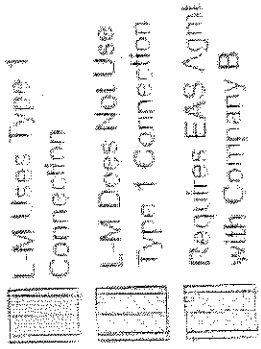 L-M Uses Type 1
Connection
L-M Does Not Use
Type 1 Connection
Requires EAS Agmt
With Company B